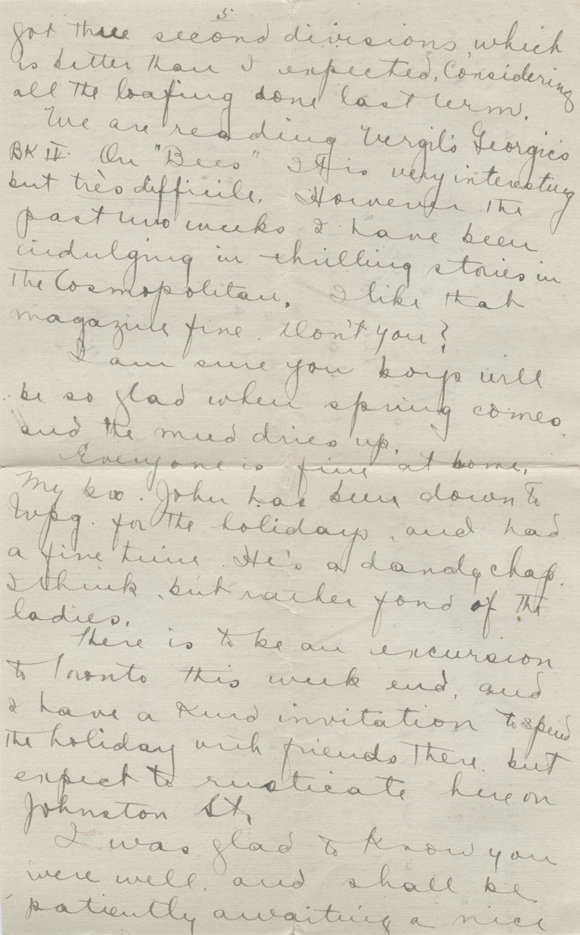 5
got three second divisions, which
is better than I expected, Considering
all the loafing done last term.
We are reading Vergil's Georgics
BK IV. On "Bees" It is very interesting
but très difficile. However the
past two weeks I have been
indulging in thrilling stories in
the Cosmopolitan. I like that
magazine fine. Don't you?
I am sure you boys will
be so glad when spring comes
and the mud dries up.
Everyone is fine at home.
My bro. John has been down to
Wpg. for the holidays, and had
a fine time. He's a dandy chap.
I think, but rather fond of the
ladies.
There is to be an excursion
to Toronto this week end, and
I have a kind invitation to spend
the holiday with friends there. but
expect to rusticate here on
Johnston St.
I was glad to know you
were well. and shall be
patiently awaiting a nice